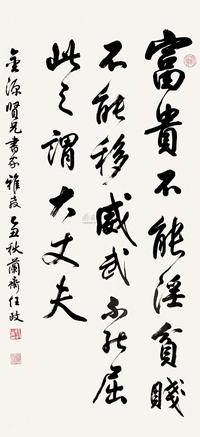 富貴不能淫貧賤
不能移威武不能屈
此之謂大丈夫
金源賢兄書家雅友乙丑秋蘭齋任政